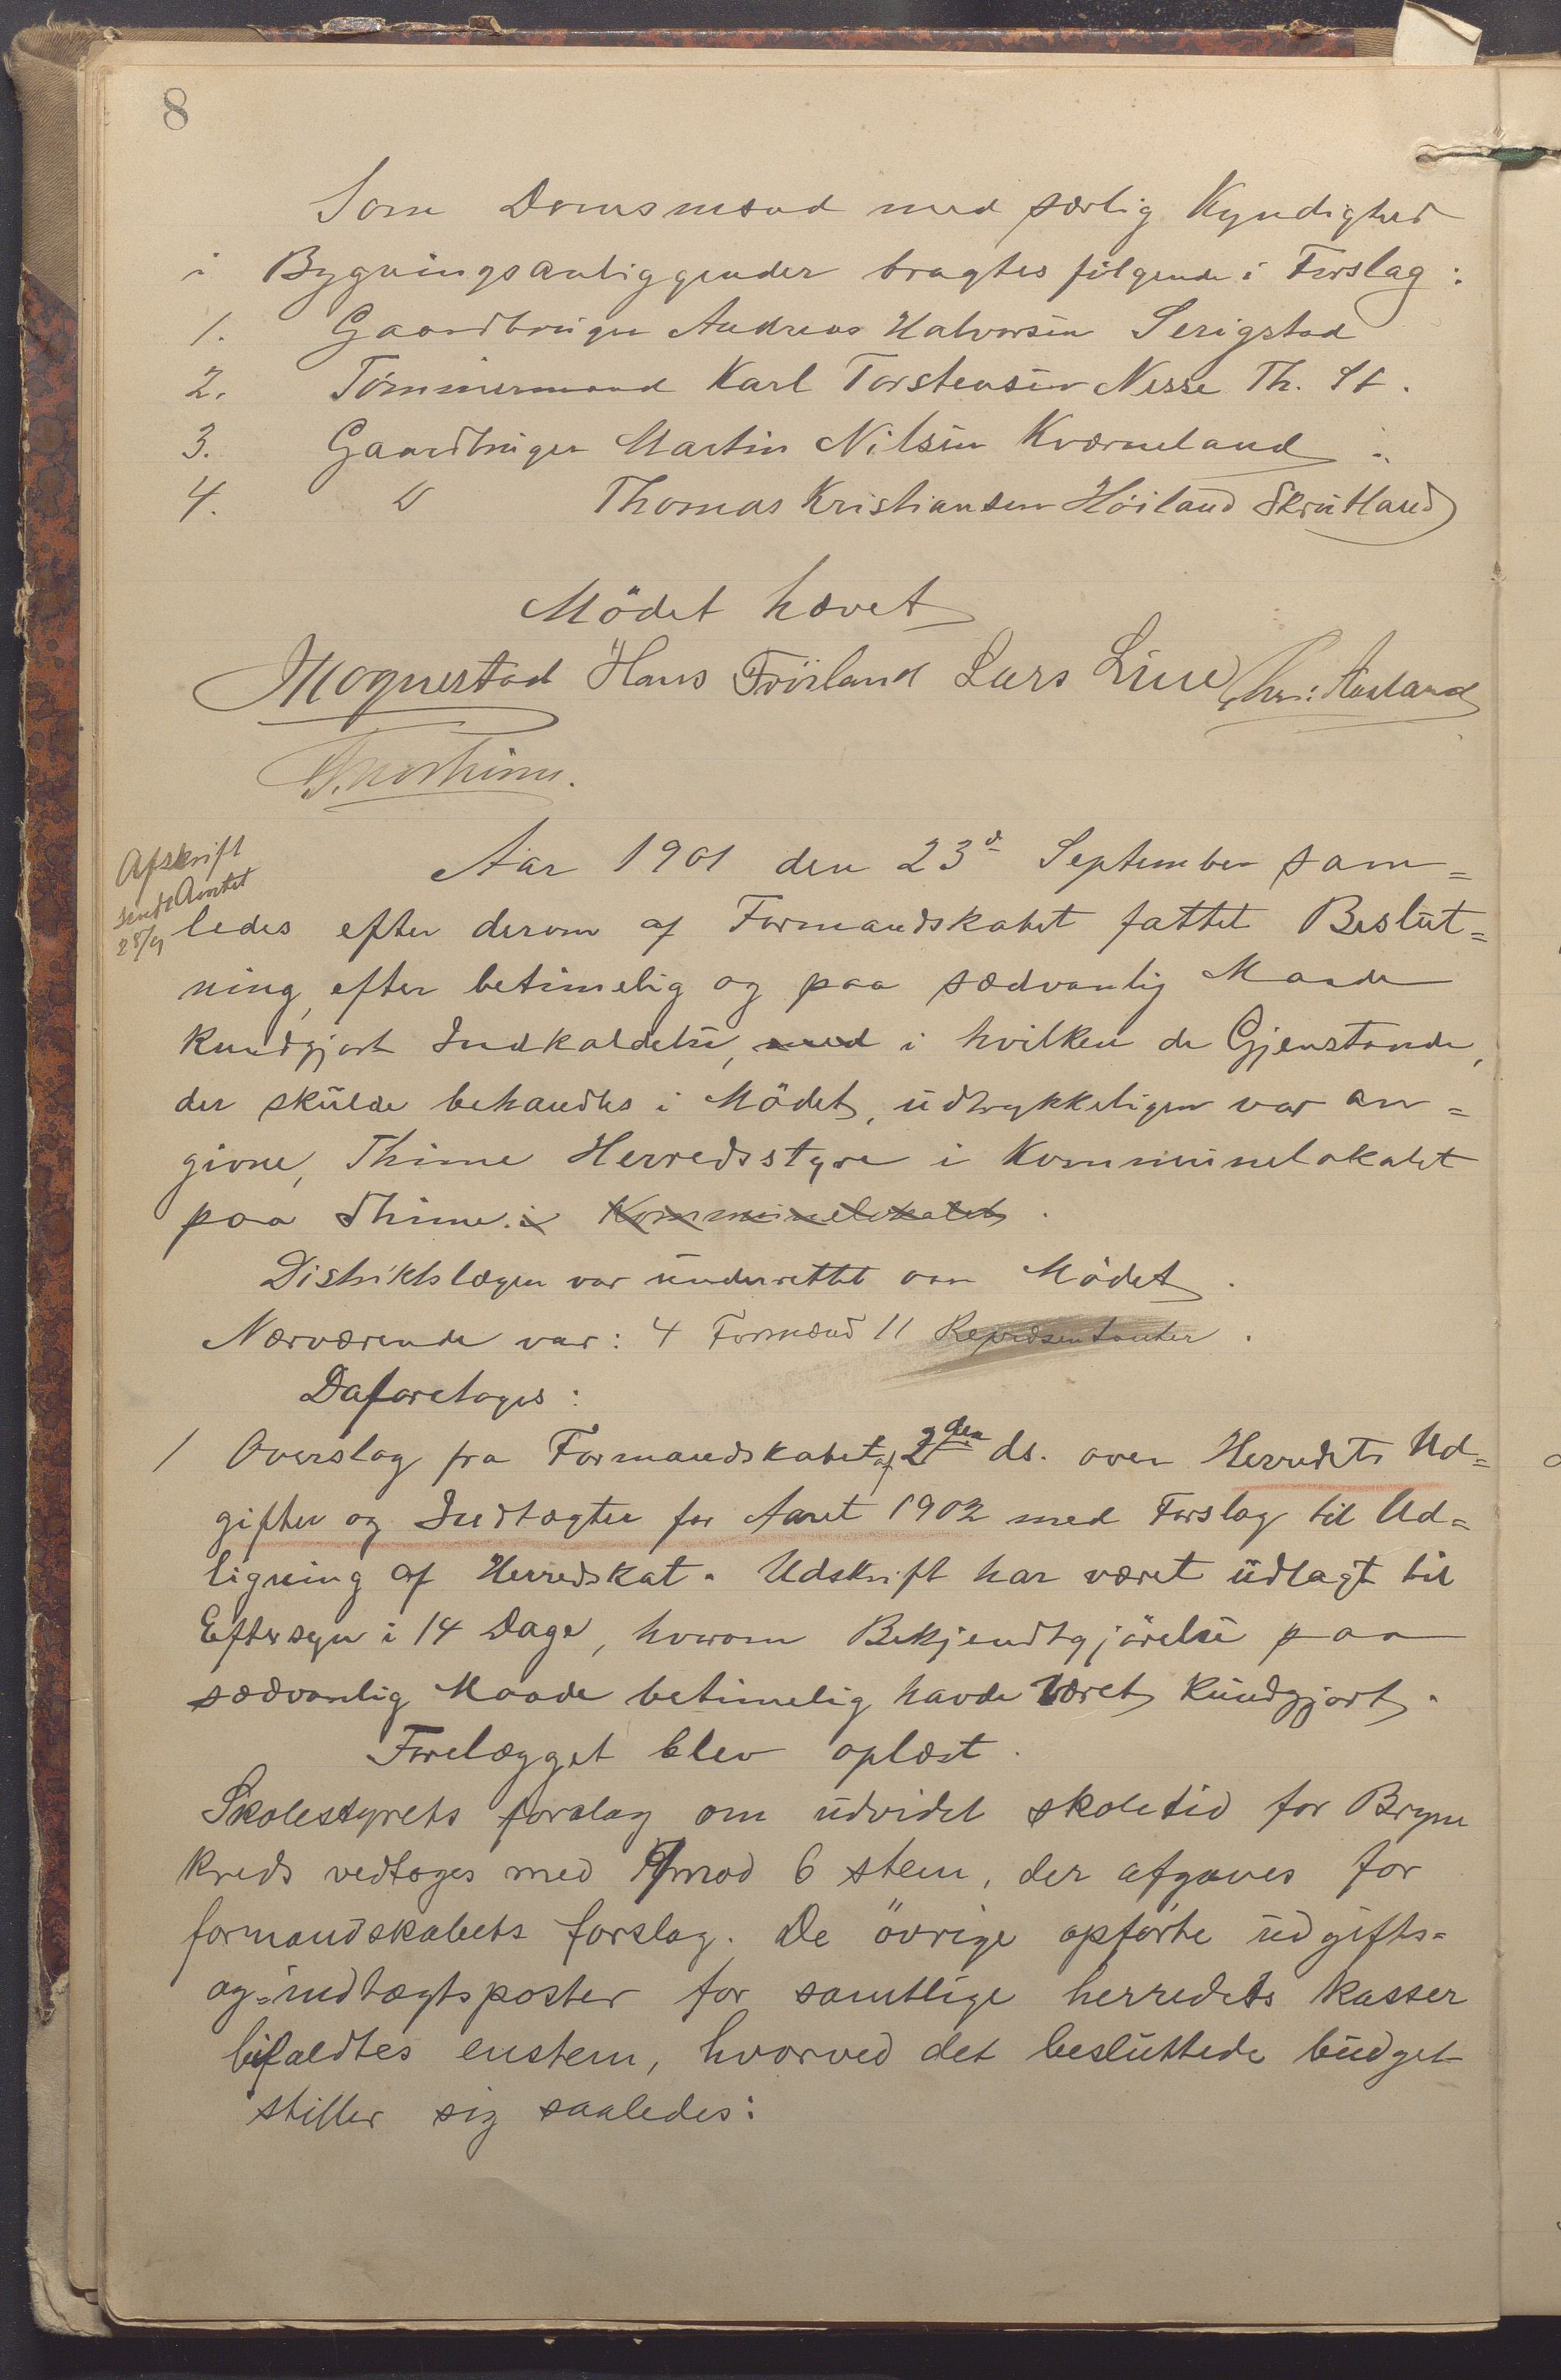 8
Som Domsmænd med særlig Kyndighed
i Bygningsanliggender bragtes følgende i Forslag:
1. Gaardbruger Andreas Halvorsen Serigstad
2. Tømmermand Karl Torstensen Nesse Th. St.
3. Gaardbruger Martin Nilsen Kværneland
4. D Thomas Kristiansen Höiland Skrutland
Mödet hævet
Mognestad Hans Fröiland Lars Line Chr: Aasland
Afskrift
sendt Amtet
28/9
Aar 1901 den 23d September sam=
ledes efter derom af Formandskabet fattet Beslut=
ning, efter betimelig og paa sædvanlig Maade
kundgjort Indkaldelse, med i hvilken de Gjenstande,
der skulde behandles i Mödet, udtrykkeligen var an=
givne, Thime Herredsstyre i Kommunelokalet
paa Thime. i Kommunelokalet.
Distriktslægen var underrettet om Mödet.
Nærværende var: 4 Formænd 11 Repræsentanter.
Da foretoges:
1 Overslag fra Formandskabet af 2den ds. over Herredets Ud=
gifter og Indtægter for Aaret 1902 med Forslag til Ud=
ligning af Herredskat. Udskrift har været udlagt til
Eftersyn i 14 Dage, hvorom Bekjendtgjörelse paa
sædvanlig Maade betimelig havde været kundgjort.
Forelægget blev oplæst.
Skolestyrets forslag om udvidet skoletid for Bryne
kreds vedtoges med 9 mod 6 stem, der afgaves for
formandskabets forslag. De övrige opförte udgifts=
og indtægtsposter for samtlige herredets kasser
bifaldtes enstem, hvorved det besluttede budget
stiller sig saaledes: